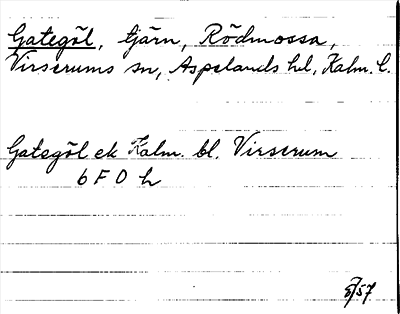 Gategöl, tjärn, Rödmossa,
Virserums sn, Aspelands hd, Kalm. l.
Gategöl ek Kalm. bl. Virserum
6 F 0 h
/57